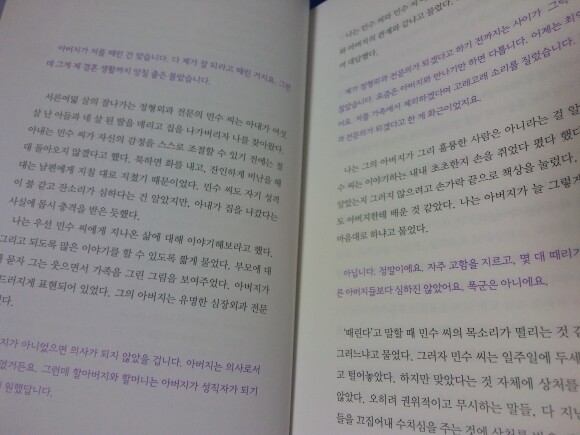 아버지가 저를 때린 건 맞습니다. 다 제가 잘 되라고 때린 거지요. 그런
데 그게 제 결혼 생활까지 망칠 줄은 몰랐습니다.
서른여덟 살의 잘나가는 정형외과 전문의 민수 씨는 아내가 여섯
살 난 아들과 네 살 된 딸을 데리고 집을 나가버리자 나를 찾아왔다.
아내는 민수 씨가 자신의 감정을 스스로 조절할 수 있기 전에는 절
대 돌아오지 않겠다고 했다. 툭하면 화를 내고, 잔인하게 비난을 해
대는 남편에게 지칠 대로 지쳤기 때문이었다. 민수 씨도 자기 성격
이 불 같고 잔소리가 심하다는 건 알았지만, 아내가 집을 나갔다는
사실에 몹시 충격을 받은 듯했다.
나는 우선 민수 씨에게 지나온 삶에 대해 이야기해보라고 했다.
그리고 되도록 많은 이야기를 할 수 있도록 짧게 물었다. 부모에 대
문자 그는 웃으면서 가족을 그린 그림을 보여주었다. 아버지가
드러지게 표현되어 있었다. 그의 아버지는 유명한 심장외과 전문
지가 아니었으면 의사가 되지 않았을 겁니다. 아버지는 의사로서
었거든요. 그런데 할아버지와 할머니는 아버지가 성직자가 되기
원했답니다.
나는 민수 씨와 민수
와 아버지의 관계와 같냐고 물었다.
며 대답했다.
제가 정형외과 전문의가 되겠다고 하기 전까지는 사이가
잖았습니다. 요즘은 아버지와 만나기만 하면 다툽니다. 어제는
어요. 저를 가족에서 제외하겠다며 고래고래 소리를 질렀습니다.
과 전문의가 되겠다고 한 게 화근이었지요.
나는 그의 아버지가 그리 훌륭한 사람은 아니라는 걸 알
수 씨는 이야기하는 내내 초조한지 손을 쥐었다 폈다 했다
않았는지 그러지 않으려고 손가락 끝으로 책상을 눌렀다.
도 아버지한테 배운 것 같았다. 나는 아버지가 늘 그렇게
마음대로 하냐고 물었다.
아닙니다. 정말이에요. 자주 고함을 지르고, 몇 대 때리기
른 아버지들보다 심하진 않았어요. 폭군은 아니에요.
'때린다'고 말할 때 민수 씨의 목소리가 떨리는 것 같
그러느냐고 물었다. 그러자 민수 씨는 일주일에 두세
고 털어놓았다. 하지만 맞았다는 것 자체에 상처를
않았다. 오히려 권위적이고 무시하는 말들, 다 지난
들을 끄집어내 수치심을 주는 것에 상처를